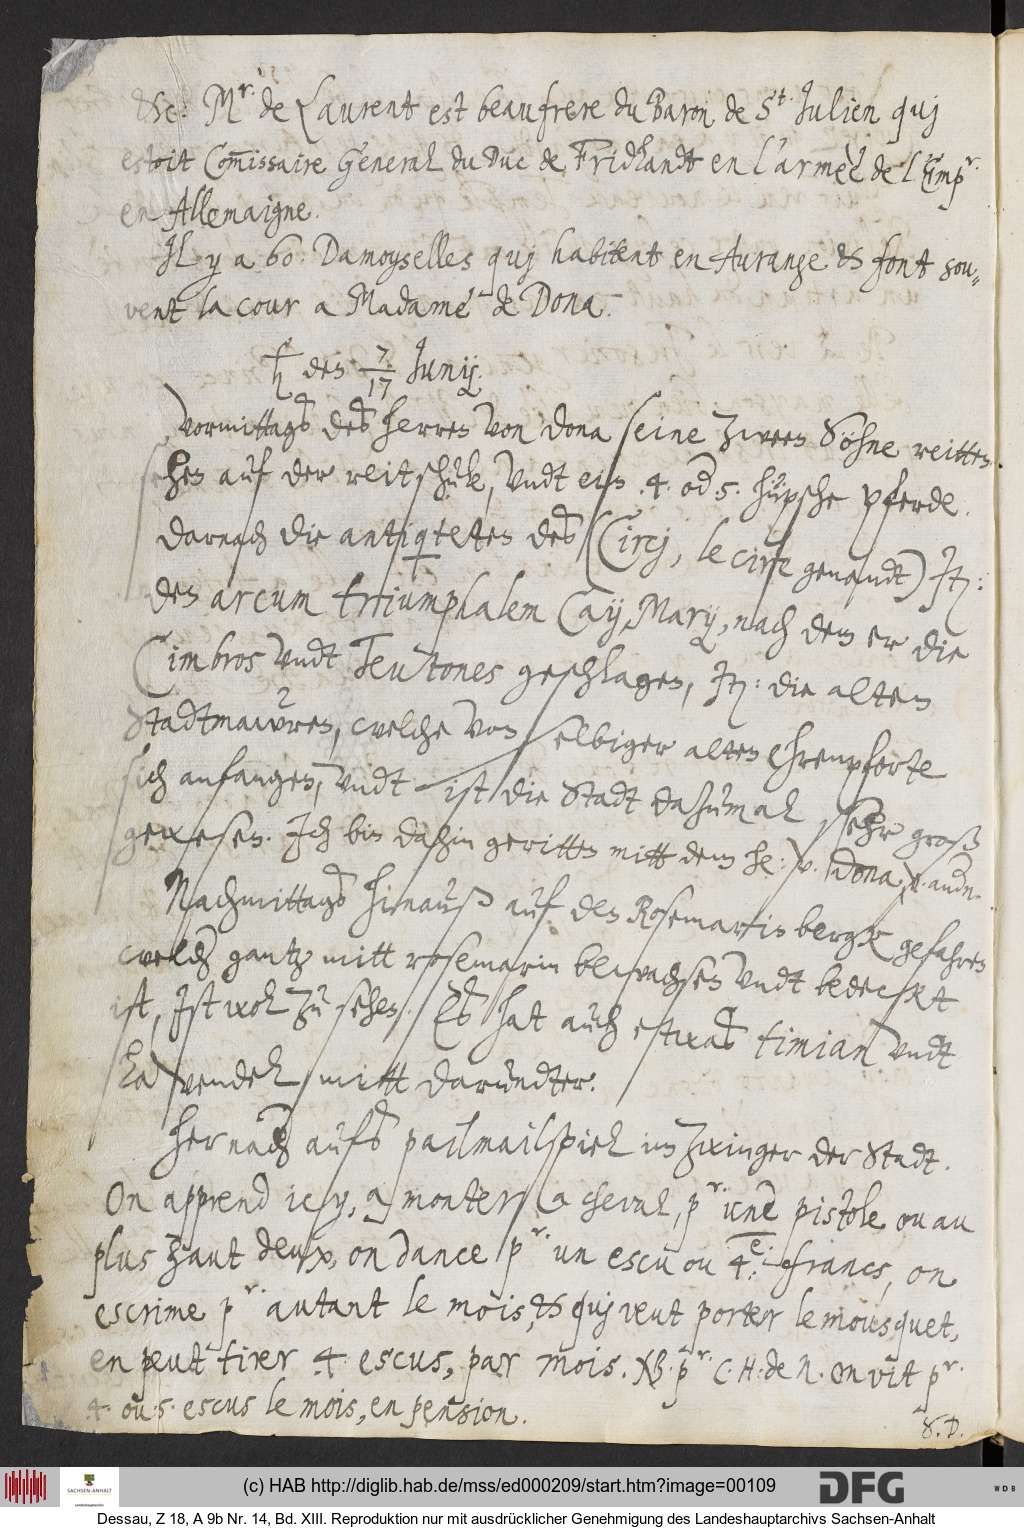 &c: Mr. de Laurent est beaufrere du Baron de St. Julien quj
estoit Com̅issaire General du Duc de Fridlandt en l'armèè de l'Empr.
en Allemaigne.
Jl y a 60. Damoyselles quj habitent en Aurange & font sou¬
vent la cour a Madame de Dona.
♄ den 7/17 Junij.
Vormittagß deß herren von Dona seine zween Söhne reitten
sehen auf der reitschule, vndt ein .4. od: 5. hüpsche pferde.
Darnach die antiq̅teten deß (Circj, le cirke genandt) Jt:
den arcum triumphalem Caij Marij, nach dem er die
Cimbros vndt Teutones geschlagen, Jt: die alten
Stadtmawren, welche von selbiger alten Ehrenpforte
sich anfangen, vndt ist die Stadt dazumal sehr groß
gewesen. Jch bin dahin geritten mitt dem he: v. Dona, v. andn.
Nachmittagß hinauß auf den Rosemarinbergk gefahren
welch gantz mitt rosemarin bewachsen vndt bedeckt
ist, Jst wol zu sehen. Eß hat auch etwaß timian vndt
Lavendel mitt darundter.
Hernach aufß pailmailspiel im Zwinger der Stadt.
On apprend icy, a monter a cheval, pr. une pistole ou au
plus haut deux, on dance pr. un escu ou 4.e: francs, on
escrime pr. autant le mois, & quj veut porter le mousquet,
en peut tirer 4. escus, par mois. NB. pr. C. H: de N. On vit pr.
4. ou 5. escus le mois, en pension.
(c) HAB http://diglib.hab.de/mss/ed000209/start.htm?image=00109
SACHSEN-ANHALT
DFG
WDB
Dessau, Z 18, A 9b Nr. 14, Bd. XIII. Reproduktion nur mit ausdrücklicher Genehmigung des Landeshauptarchivs Sachsen-Anhalt